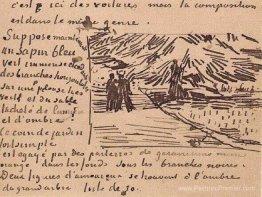 c'est ici des voilures mais la composition
est dans le même genre.
Suppose maintenant
un sapin bleu
vert immense
des branches horizontales
sur une pelouse
verte et du sable
tacheté de
et d'ombre.
Le coin de jardin
fort simple
est égayé par des parterres de geraniums mine
orange dans les fonds sous les branches noires.
Deux figures d'amoureux se trouvent à l'ombre
du grand arbre toile de 30.
© www.PaintersPremier.com